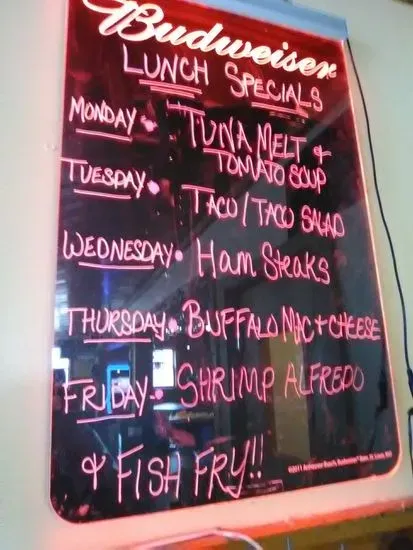 Budweiser
LUNCH SPECIALS
MONDAY • TUNA MELT &
TOMATO SOUP
TUESDAY • TACO/TACO SALAD
WEDNESDAY • Ham Steaks
THURSDAY • BUFFALO MAC + CHEESE
FRIDAY • SHRIMP ALFREDO
& FISH FRY!!
©2011 Anheuser-Busch, Budweiser® Beer, St. Louis, MO